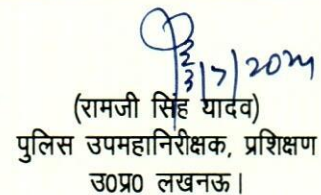 (रामजी सिंह यादव)
पुलिस उपमहानिरीक्षक, प्रशिक्षण
उ0प्र0 लखनऊ।